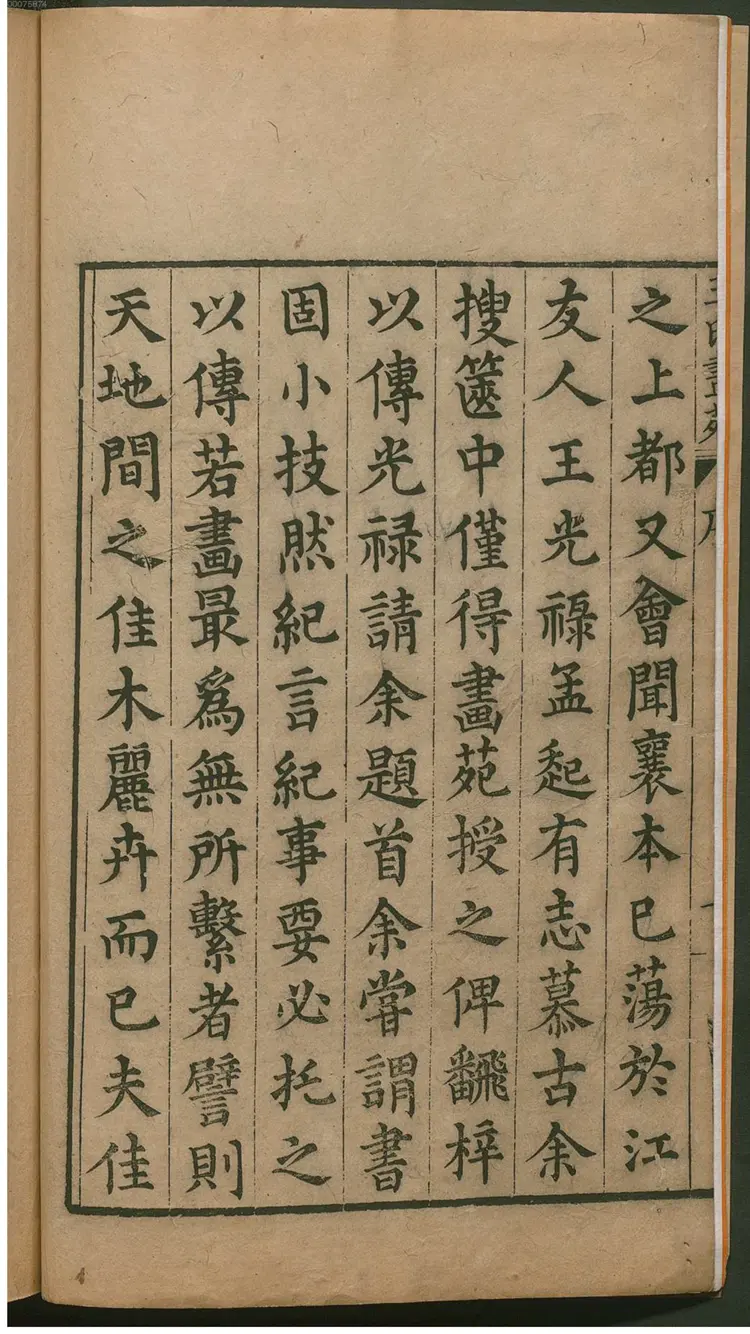 之上都又會聞襄本已蕩於江
友人王光祿孟起有志慕古余
搜篋中僅得畫苑授之俾飜梓
以傳光祿請余題首余嘗謂書
固小技然紀言紀事要必托之
以傳若畫最爲無所繫者譬則
天地間之佳木麗卉而已夫佳